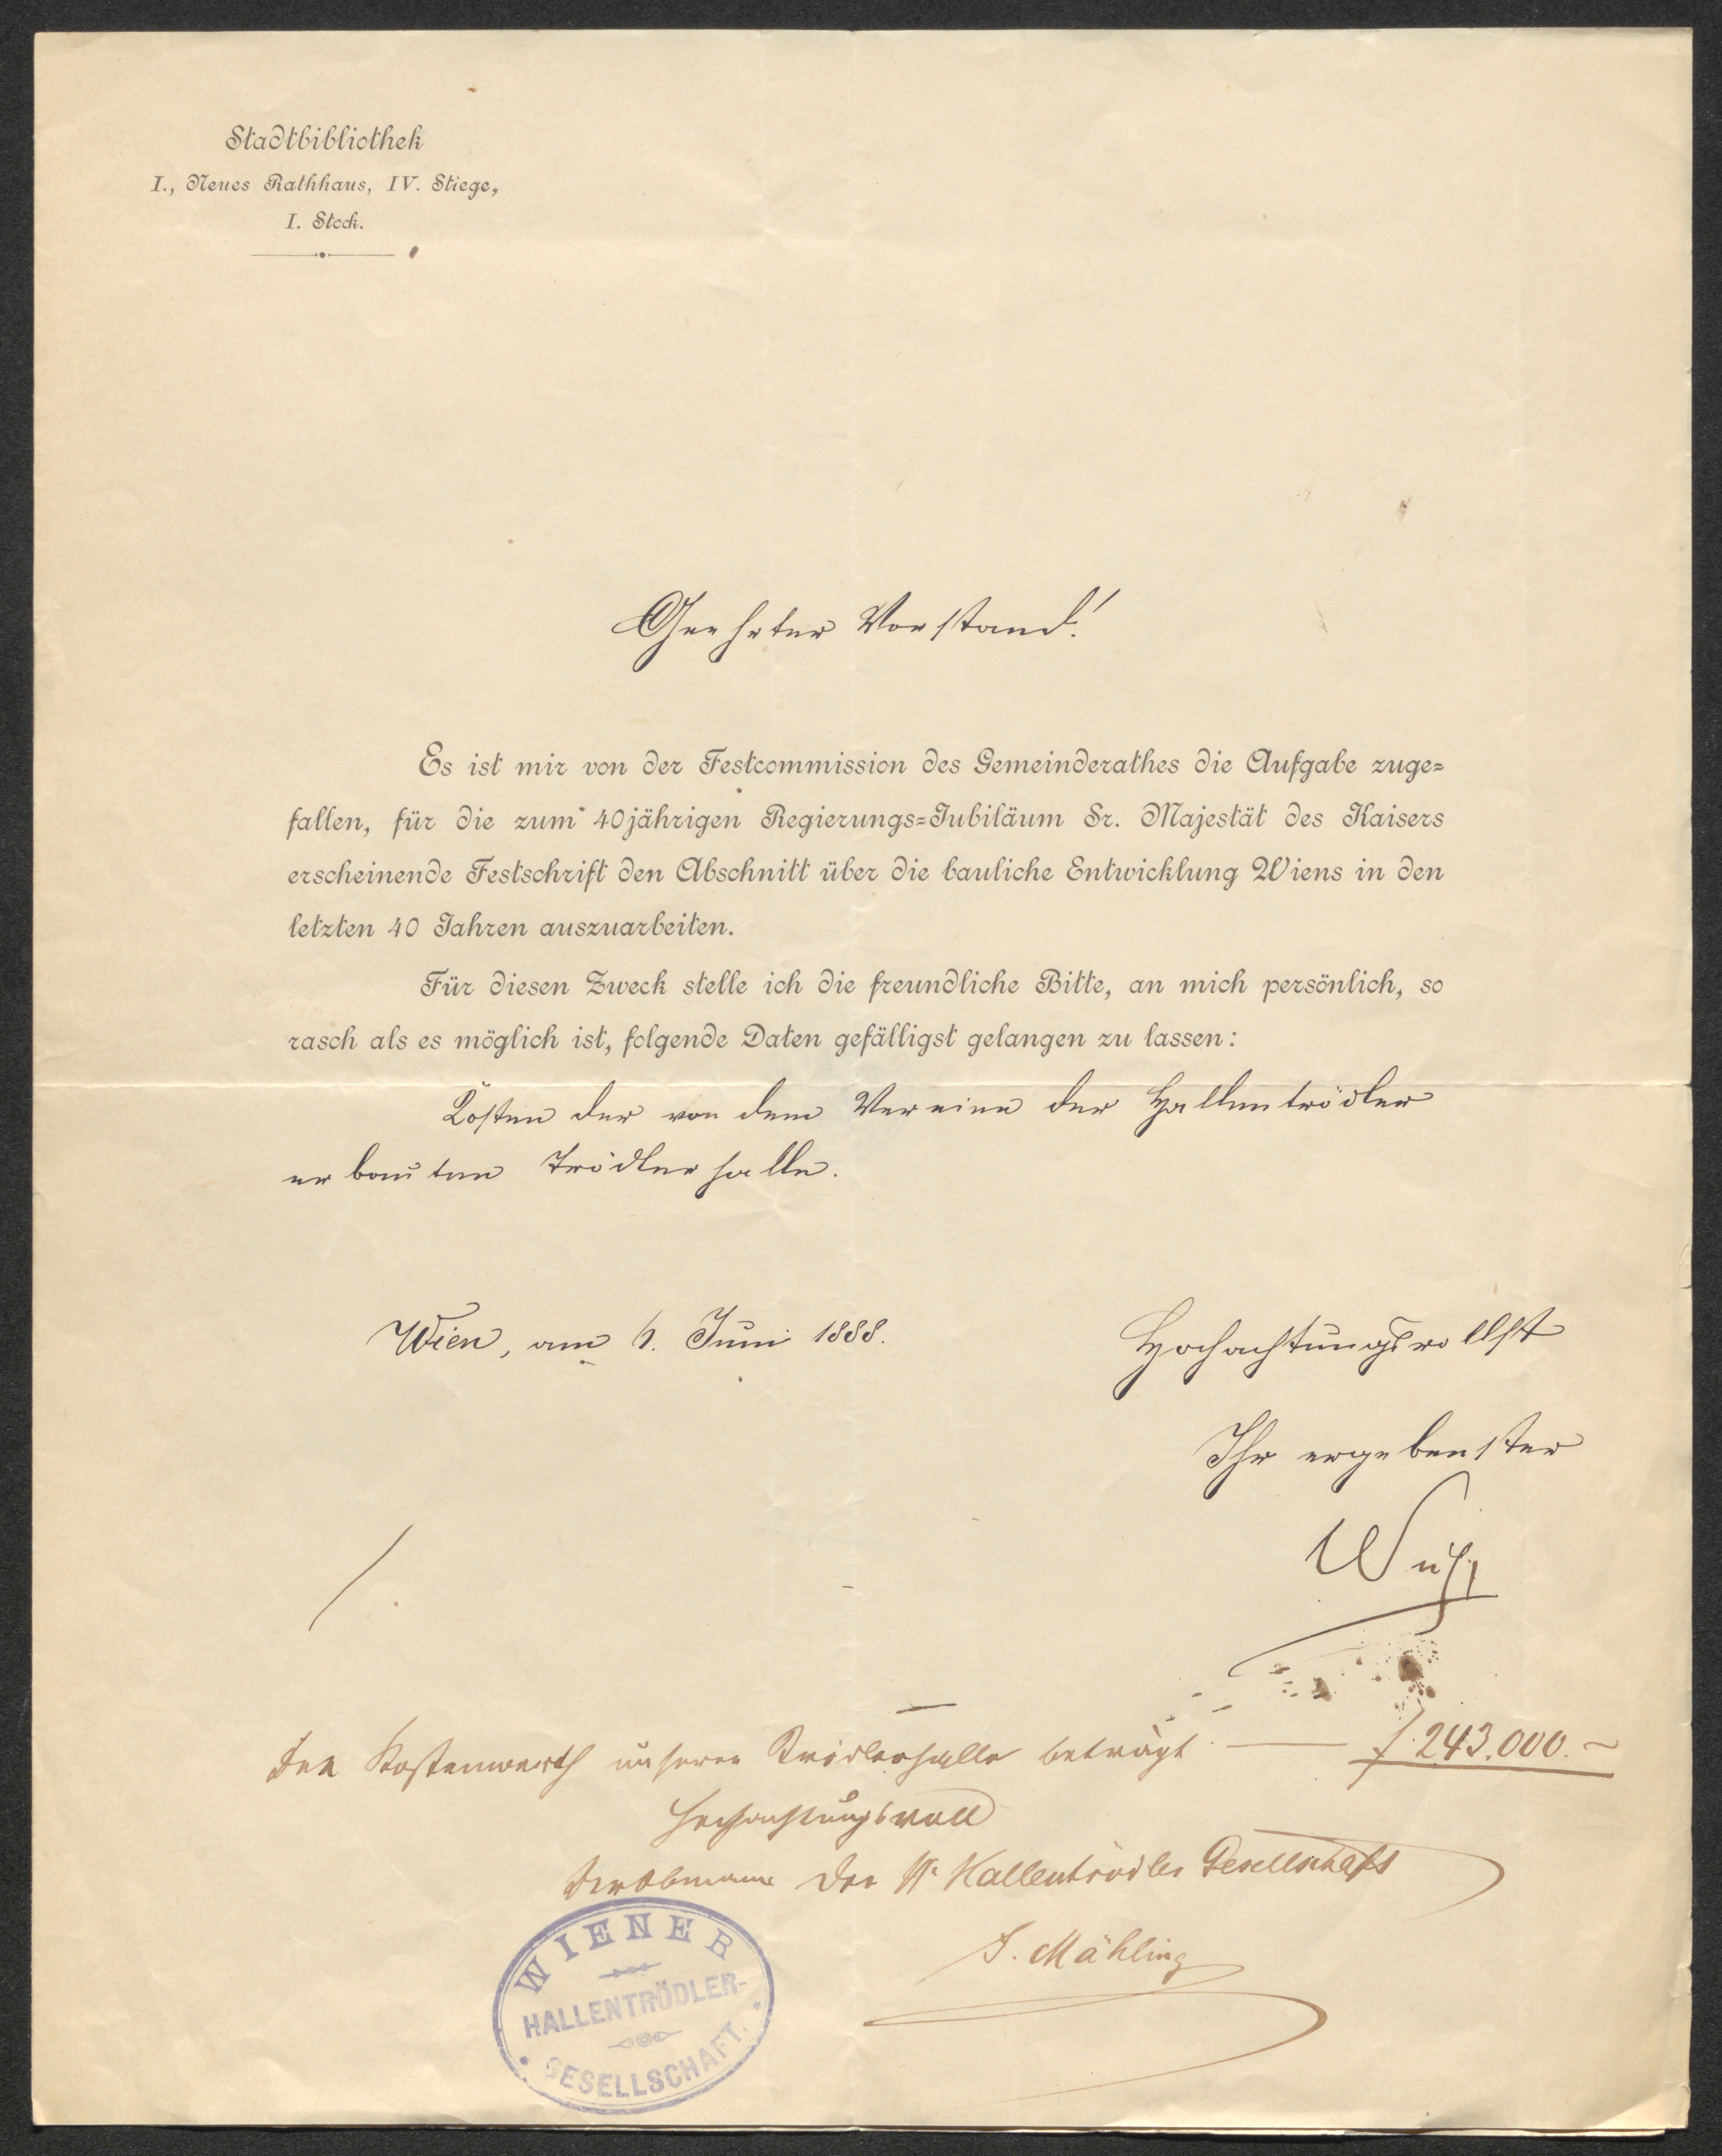 Stadtbibliothek
I., Neues Rathhaus, IV. Stiege,
I. Stock.
Geehrter Vorstand!
Es ist mir von der Festcommission des Gemeinderathes die Aufgabe zuge=
fallen, für die zum 40jährigen Regierungs=Jubiläum Sr. Majestät des Kaisers
erscheinende Festschrift den Abschnitt über die bauliche Entwicklung Wiens in den
letzten 40 Jahren auszuarbeiten.
Für diesen Zweck stelle ich die freundliche Bitte, an mich persönlich, so
rasch als es möglich ist, folgende Daten gefälligst gelangen zu lassen:
Kosten der von dem Vereine der Hallentrödler
erbauten Trödlerhalle.
Wien, am 6. Juni 1888.
Hochachtungsvollst
Ihr ergebenster
Der Kostenwerth unserer Trödlerhalle beträgt — f 243.000.–
Hochachtungsvoll
Der Obmann der W. Hallentrödler Gesellschaft
J. Mähling
WIENER
HALLENTRÖDLER-
GESELLSCHAFT.